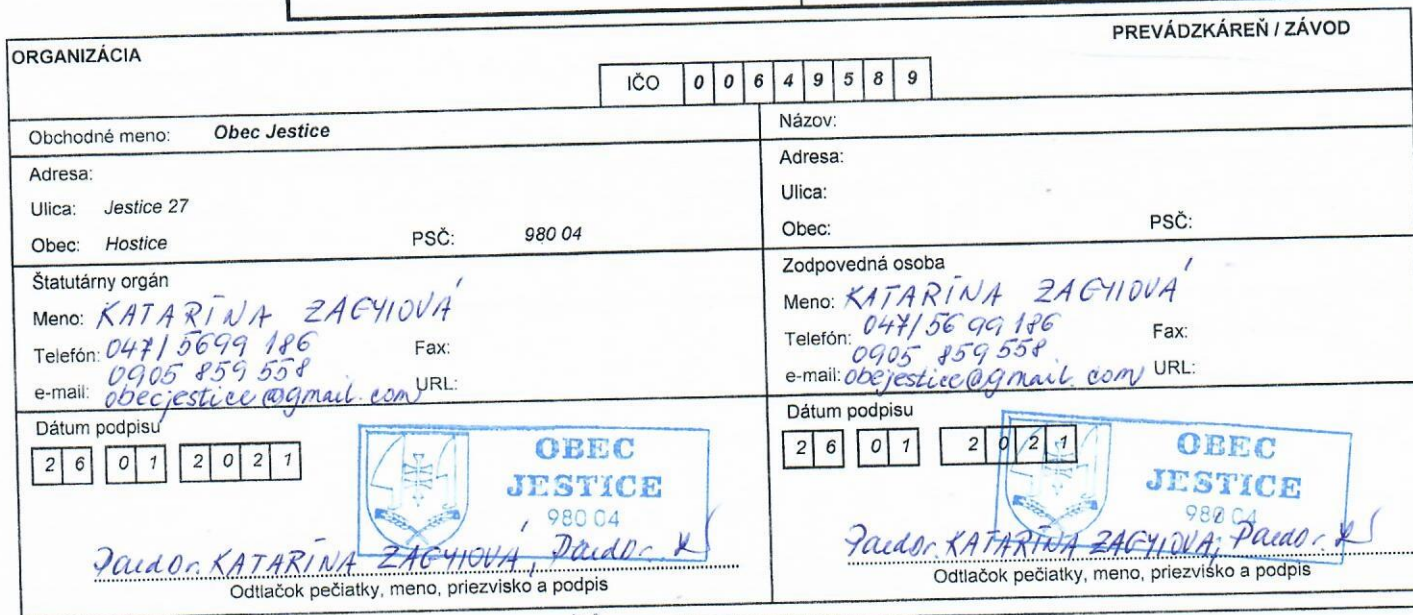 ORGANIZÁCIA
PREVÁDZKÁREŇ / ZÁVOD
IČO 0 0 6 4 9 5 8 9
Obchodné meno: Obec Jestice
Adresa:
Ulica: Jestice 27
Obec: Hostice PSČ: 980 04
Štatutárny orgán
Meno: KATARÍNA ZAGYIOVÁ
Telefón: 047/5699 186 Fax:
0905 859 558
e-mail: obecjestice@gmail.com URL:
Dátum podpisu
26 01 2021
OBEC
JESTICE
980 04
KATARÍNA ZAGYIOVÁ,
Odtlačok pečiatky, meno, priezvisko a podpis
Názov:
Adresa:
Ulica:
Obec: PSČ:
Zodpovedná osoba
Meno: KATARÍNA ZAGYIOVÁ
Telefón: 047/5699 186 Fax:
0905 859 558
e-mail: obejestice@gmail.com URL:
Dátum podpisu
26 01 2021
OBEC
JESTICE
980 04
KATARÍNA ZAGYIOVÁ,
Odtlačok pečiatky, meno, priezvisko a podpis